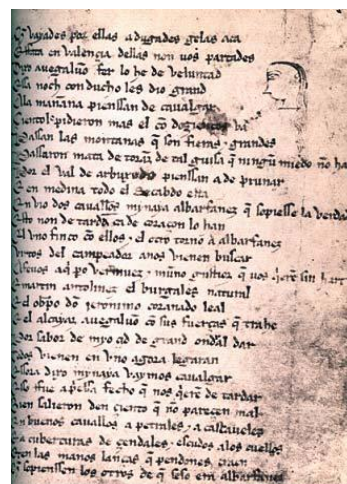 Q̃ vayades por ellas adugades gelas aca
Ffata en valençia dellas non uos partades
Dixo auegaluõ fer lo he de veluntad
Essa noch conducho les dio grand
Ala mañana pienssan de caualgar
Çientol pidieron mas el cõ dozientos va
Passan las montanas q̃ son fieras & grandes
Passaron mata de torãz de tal guisa q̃ ningũ miedo nõ ha
Por el val de arbuxedo pienssan a de prunar
E en medina todo el Recabdo esta
Envio dos cauallos mynaya albarfanez q̃ sopiesse la verda
Esto non detardã ca de coraçon lo han
El vno finco cõ ellos & el otro torno a albarfanez
Virtos del campeador anos vienen buscar
Afeuos aq̃ po vermuez & muño gustioz q̃ uos q̃rẽ sin hart
E martin antolinez el burgales natural
E el obpo dõ jeronimo coranado leal
E el alcayaz auegaluõ cõ sus fuerças q̃ trahe
Por sabor de myo çid de grand ondral dar
Todos vienen en vno agora legaran
Essora dixo mynaya vaymos caualgar
Esso ffue apssa fecho q̃ nos q̃rẽ detardar
Bien salieron den çiento q̃ nõ pareçen mal
En buenos cauallos a petrales & a cascaueles
E a cuberturas de çendales & escudos alos cuellos
E en las manos lanças q̃ pendones traen
Q̃ sopienssen los otros de q̃ seso era albarfanez